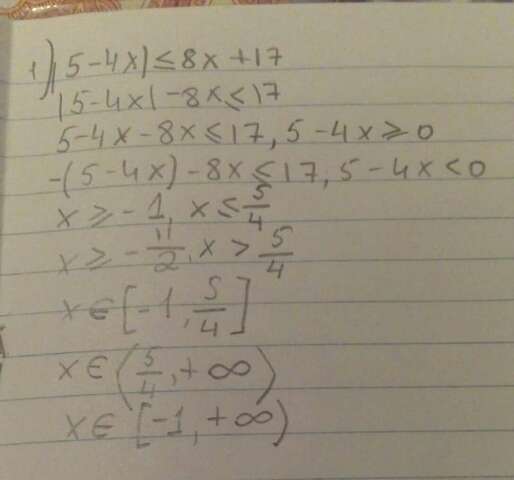 1) |5-4x|≤8x+17
|5-4x|-8x≤17
5-4x-8x≤17, 5-4x≥0
-(5-4x)-8x≤17, 5-4x<0
x≥-1, x≤5/4
x≥-11/2, x>5/4
x∈[-1, 5/4]
x∈(5/4, +∞)
x∈[-1, +∞)